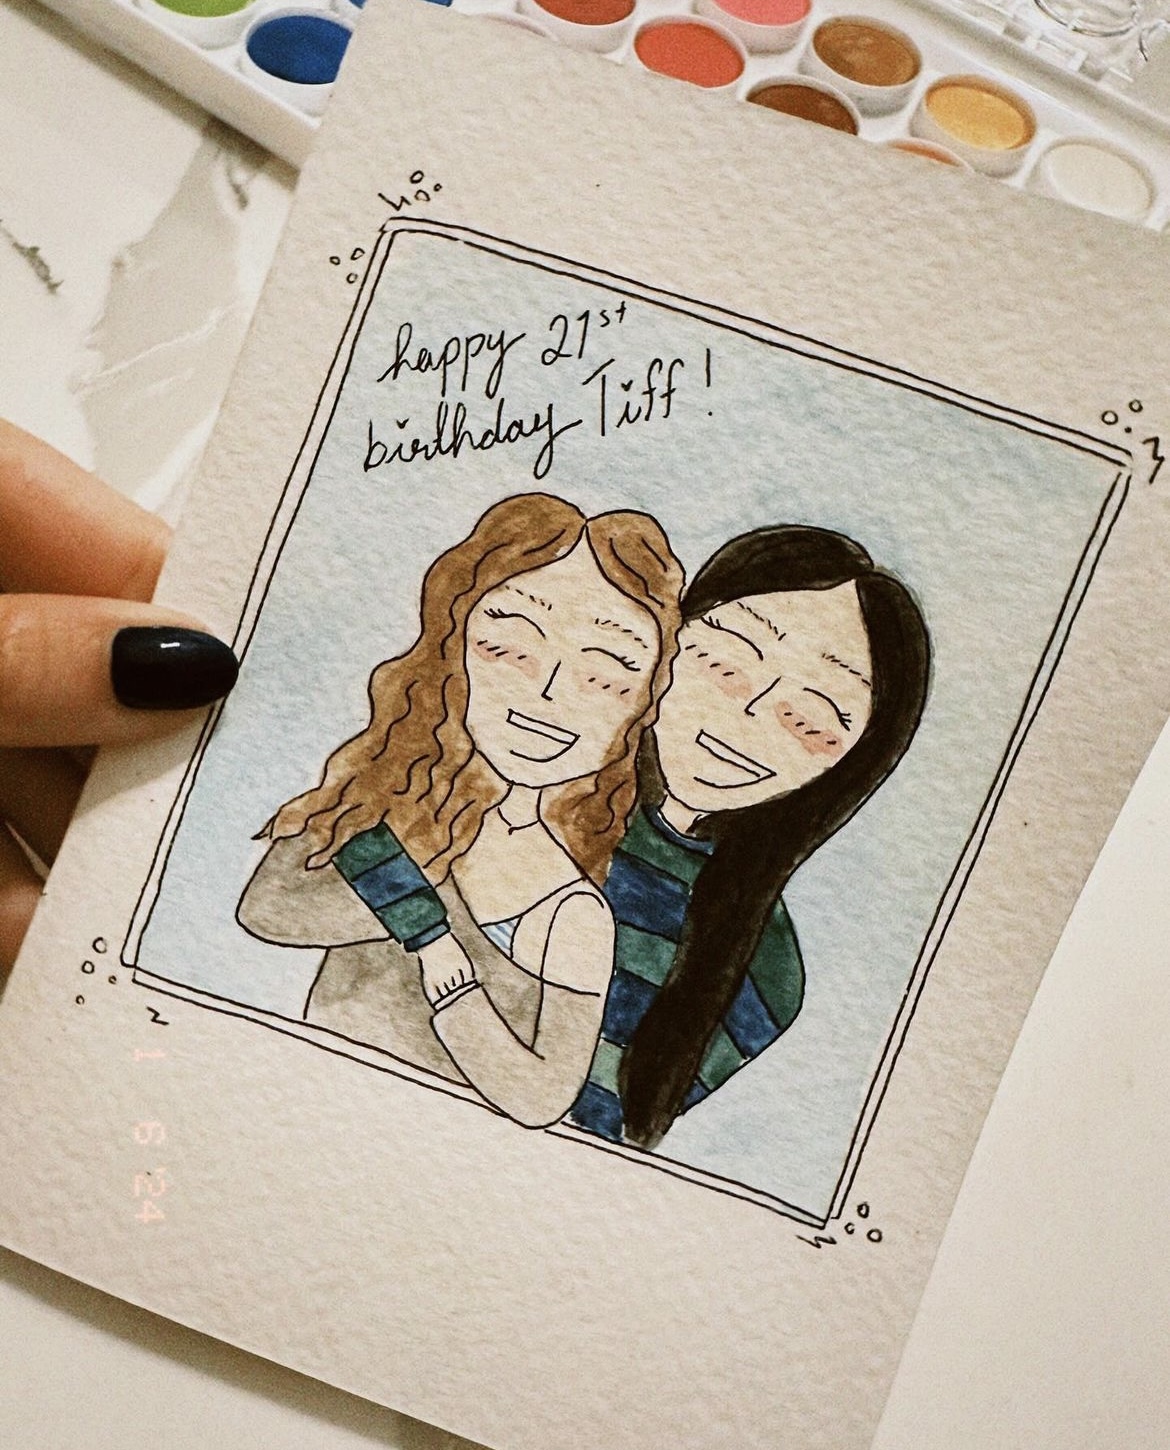 happy 21st
birthday Tiff!
1 6 '24